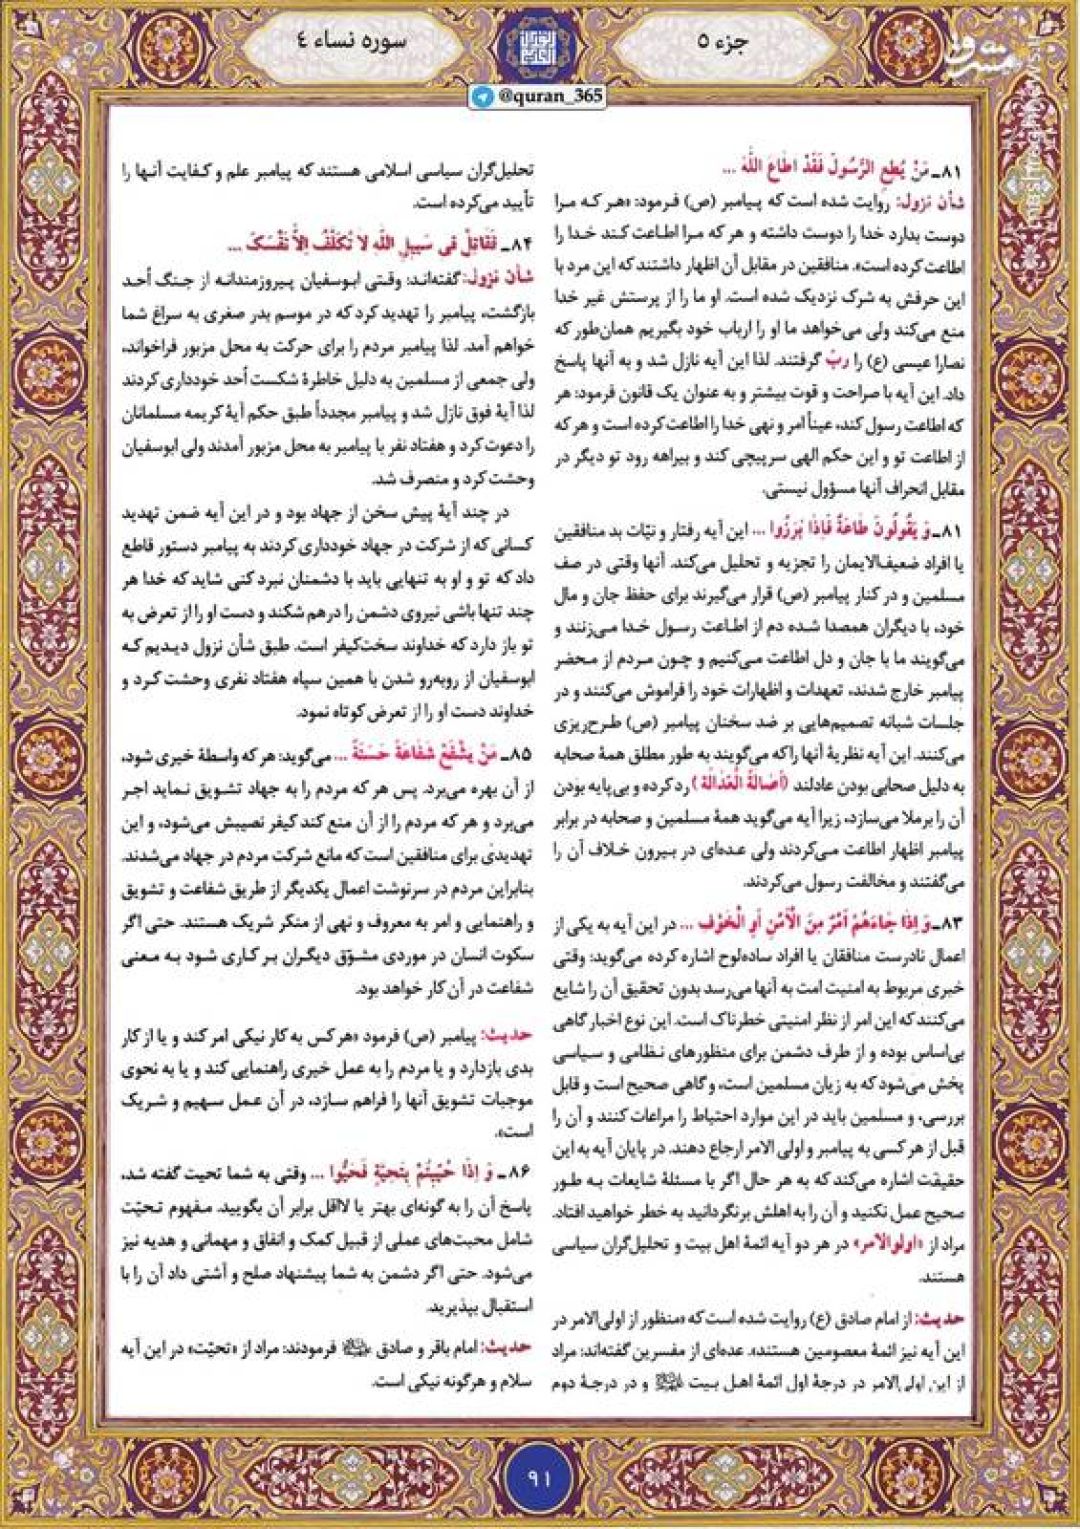 جزء ۵
سوره نساء ۴
@quran_365
۸۱ـ مَنْ يُطِعِ الرَّسُولَ فَقَدْ اَطَاعَ اللَّهَ ...
شأن نزول: روایت شده است که پیامبر (ص) فرمود: «هر که مرا
دوست بدارد خدا را دوست داشته و هر که مرا اطاعت کند خدا را
اطاعت کرده است». منافقین در مقابل آن اظهار داشتند که این مرد با
این حرفش به شرک نزدیک شده است. او ما را از پرستش غیر خدا
منع می‌کند ولی می‌خواهد ما او را ارباب خود بگیریم همان‌طور که
نصارا عیسی (ع) را ربّ گرفتند. لذا این آیه نازل شد و به آنها پاسخ
داد. این آیه با صراحت و قوت بیشتر و به عنوان یک قانون فرمود: هر
که اطاعت رسول کند، عیناً امر و نهی خدا را اطاعت کرده است و هر که
از اطاعت تو و این حکم الهی سرپیچی کند و بیراهه رود تو دیگر در
مقابل انحراف آنها مسؤول نیستی.
۸۱ـ وَ يَقُولُونَ طَاعَةٌ فَاِذَا بَرَزُوا ... این آیه رفتار و نیّات بد منافقین
یا افراد ضعیف‌الایمان را تجزیه و تحلیل می‌کند. آنها وقتی در صف
مسلمین و در کنار پیامبر (ص) قرار می‌گیرند برای حفظ جان و مال
خود، با دیگران همصدا شده دم از اطاعت رسول خدا می‌زنند و
می‌گویند ما با جان و دل اطاعت می‌کنیم و چون مردم از محضر
پیامبر خارج شدند، تعهدات و اظهارات خود را فراموش می‌کنند و در
جلسات شبانه تصمیم‌هایی بر ضد سخنان پیامبر (ص) طرح‌ریزی
می‌کنند. این آیه نظریهٔ آنها را که می‌گویند به طور مطلق همهٔ صحابه
به دلیل صحابی بودن عادلند (اَصَالَةُ الْعَدَالَة) رد کرده و بی‌پایه بودن
آن را برملا می‌سازد، زیرا آیه می‌گوید همهٔ مسلمین و صحابه در برابر
پیامبر اظهار اطاعت می‌کردند ولی عده‌ای در بیرون خلاف آن را
می‌گفتند و مخالفت رسول می‌کردند.
۸۳ـ وَ اِذَا جَاءَهُمْ اَمْرٌ مِنَ الْاَمْنِ اَوِ الْخَوْفِ ... در این آیه به یکی از
اعمال نادرست منافقان یا افراد ساده‌لوح اشاره کرده می‌گوید: وقتی
خبری مربوط به امنیت امت به آنها می‌رسد بدون تحقیق آن را شایع
می‌کنند که این امر از نظر امنیتی خطرناک است. این نوع اخبار گاهی
بی‌اساس بوده و از طرف دشمن برای منظورهای نظامی و سیاسی
پخش می‌شود که به زیان مسلمین است، و گاهی صحیح است و قابل
بررسی، و مسلمین باید در این موارد احتیاط را مراعات کنند و آن را
قبل از هر کسی به پیامبر و اولی الامر ارجاع دهند. در پایان آیه به این
حقیقت اشاره می‌کند که به هر حال اگر با مسئلهٔ شایعات به طور
صحیح عمل نکنید و آن را به اهلش برنگردانید به خطر خواهید افتاد.
مراد از «اولوالامر» در هر دو آیه ائمهٔ اهل بیت و تحلیل‌گران سیاسی
هستند.
حدیث: از امام صادق (ع) روایت شده است که «منظور از اولی‌الامر در
این آیه نیز ائمهٔ معصومین هستند». عده‌ای از مفسرین گفته‌اند: مراد
از این اولی‌الامر در درجهٔ اول ائمهٔ اهل بیت و در درجهٔ دوم
تحلیل‌گران سیاسی اسلامی هستند که پیامبر علم و کفایت آنها را
تأیید می‌کرده است.
۸۴ـ فَقَاتِلْ فِی سَبِیلِ اللَّهِ لَا تُكَلَّفُ اِلاَّ نَفْسَكَ ...
شأن نزول: گفته‌اند: وقتی ابوسفیان پیروزمندانه از جنگ اُحد
بازگشت، پیامبر را تهدید کرد که در موسم بدر صغری به سراغ شما
خواهم آمد. لذا پیامبر مردم را برای حرکت به محل مزبور فراخواند،
ولی جمعی از مسلمین به دلیل خاطرهٔ شکست اُحد خودداری کردند
لذا آیهٔ فوق نازل شد و پیامبر مجدداً طبق حکم آیهٔ کریمه مسلمانان
را دعوت کرد و هفتاد نفر با پیامبر به محل مزبور آمدند ولی ابوسفیان
وحشت کرد و منصرف شد.
در چند آیهٔ پیش سخن از جهاد بود و در این آیه ضمن تهدید
کسانی که از شرکت در جهاد خودداری کردند به پیامبر دستور قاطع
داد که تو و او به تنهایی باید با دشمنان نبرد کنی شاید که خدا هر
چند تنها باشی نیروی دشمن را درهم شکند و دست او را از تعرض به
تو باز دارد که خداوند سخت‌کیفر است. طبق شأن نزول دیدیم که
ابوسفیان از روبه‌رو شدن با همین سپاه هفتاد نفری وحشت کرد و
خداوند دست او را از تعرض کوتاه نمود.
۸۵ـ مَنْ يَشْفَعْ شَفَاعَةً حَسَنَةً ... می‌گوید: هر که واسطهٔ خیری شود،
از آن بهره می‌برد. پس هر که مردم را به جهاد تشویق نماید اجر
می‌برد و هر که مردم را از آن منع کند کیفر نصیبش می‌شود، و این
تهدیدی برای منافقین است که مانع شرکت مردم در جهاد می‌شدند.
بنابراین مردم در سرنوشت اعمال یکدیگر از طریق شفاعت و تشویق
و راهنمایی و امر به معروف و نهی از منکر شریک هستند. حتی اگر
سکوت انسان در موردی مشوّق دیگران بر کاری شود به معنی
شفاعت در آن کار خواهد بود.
حدیث: پیامبر (ص) فرمود «هر کس به کار نیکی امر کند و یا از کار
بدی بازدارد و یا مردم را به عمل خیری راهنمایی کند و یا به نحوی
موجبات تشویق آنها را فراهم سازد، در آن عمل سهیم و شریک
است».
۸۶ـ وَ اِذَا حُیِّیتُمْ بِتَحِیَّةٍ فَحَیُّوا ... وقتی به شما تحیت گفته شد،
پاسخ آن را به گونه‌ای بهتر یا لااقل برابر آن بگویید. مفهوم تحیّت
شامل محبت‌های عملی از قبیل کمک و انفاق و مهمانی و هدیه نیز
می‌شود. حتی اگر دشمن به شما پیشنهاد صلح و آشتی داد آن را با
استقبال بپذیرید.
حدیث: امام باقر و صادق فرمودند: مراد از «تحیّت» در این آیه
سلام و هرگونه نیکی است.
۹۱